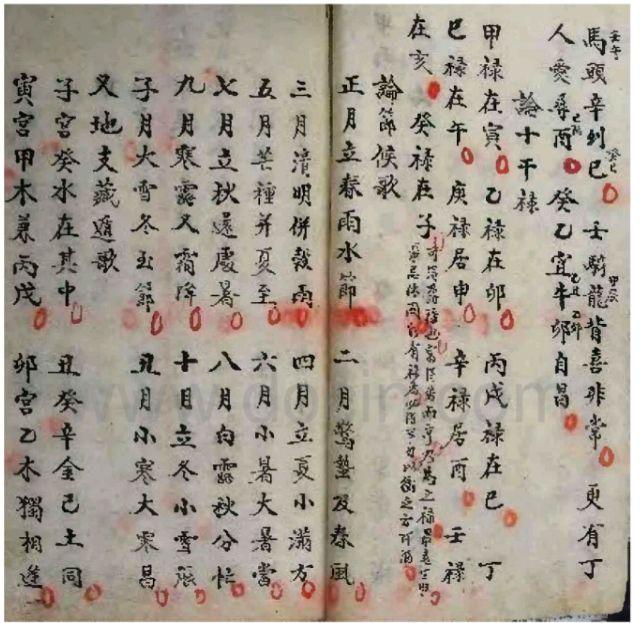 馬頭辛到巳 壬騎龍背喜非常 更有丁
人愛尋酉 癸乙宜牛卯自昌
論十干祿
甲禄在寅 乙禄在卯 丙戊禄在巳 丁
巳禄在午 庚禄居申 辛禄居酉 壬禄
在亥 癸禄在子
論節候歌
正月立春雨水節 二月驚蟄及春風
三月清明併穀雨 四月立夏小滿方
五月芒種并夏至 六月小暑大暑當
七月立秋還處暑 八月白露秋分忙
九月寒露又霜降 十月立冬小雪張
子月大雪冬至節 丑月小寒大寒昌
又地支藏遁歌
子宮癸水在其中 丑癸辛金己土同
寅宮甲木兼丙戊 卯宮乙木獨相逢